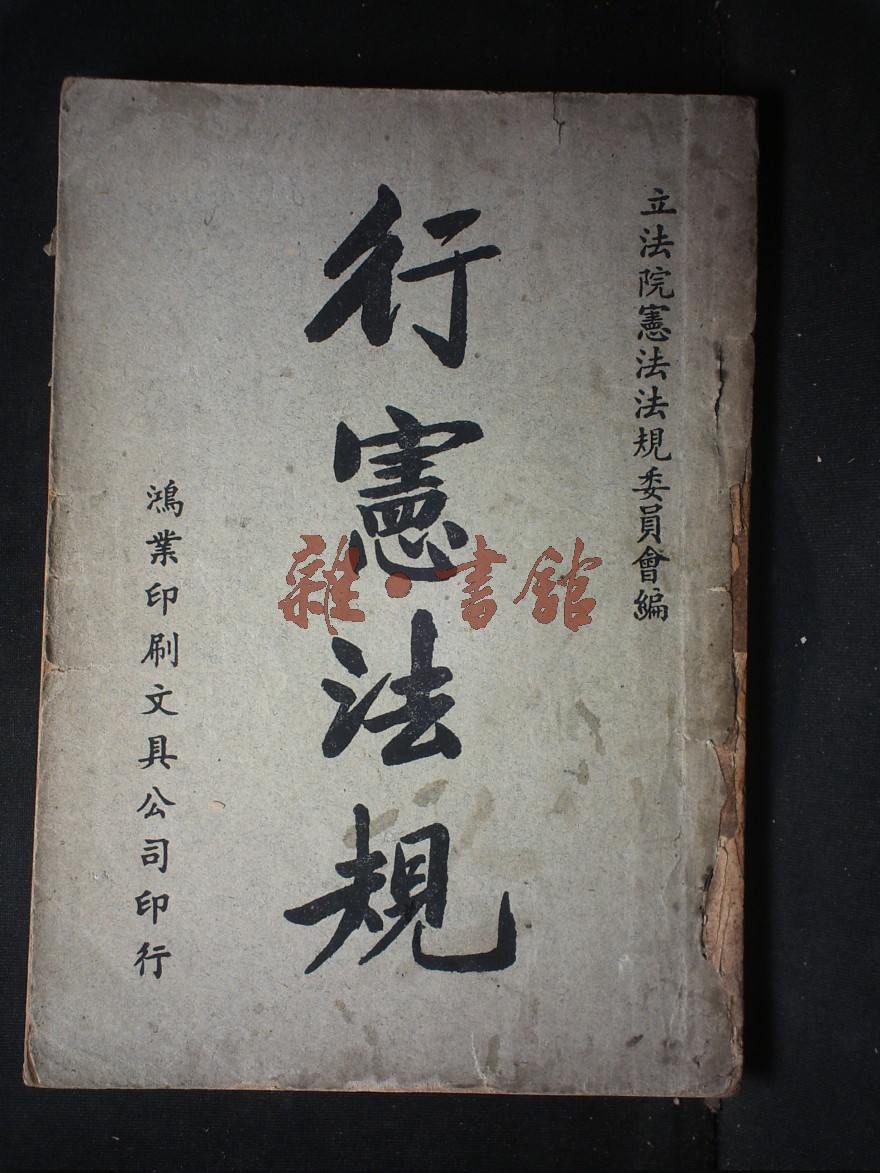 立法院憲法法規委員會編
行憲法規
鴻業印刷文具公司印行
雜·書館